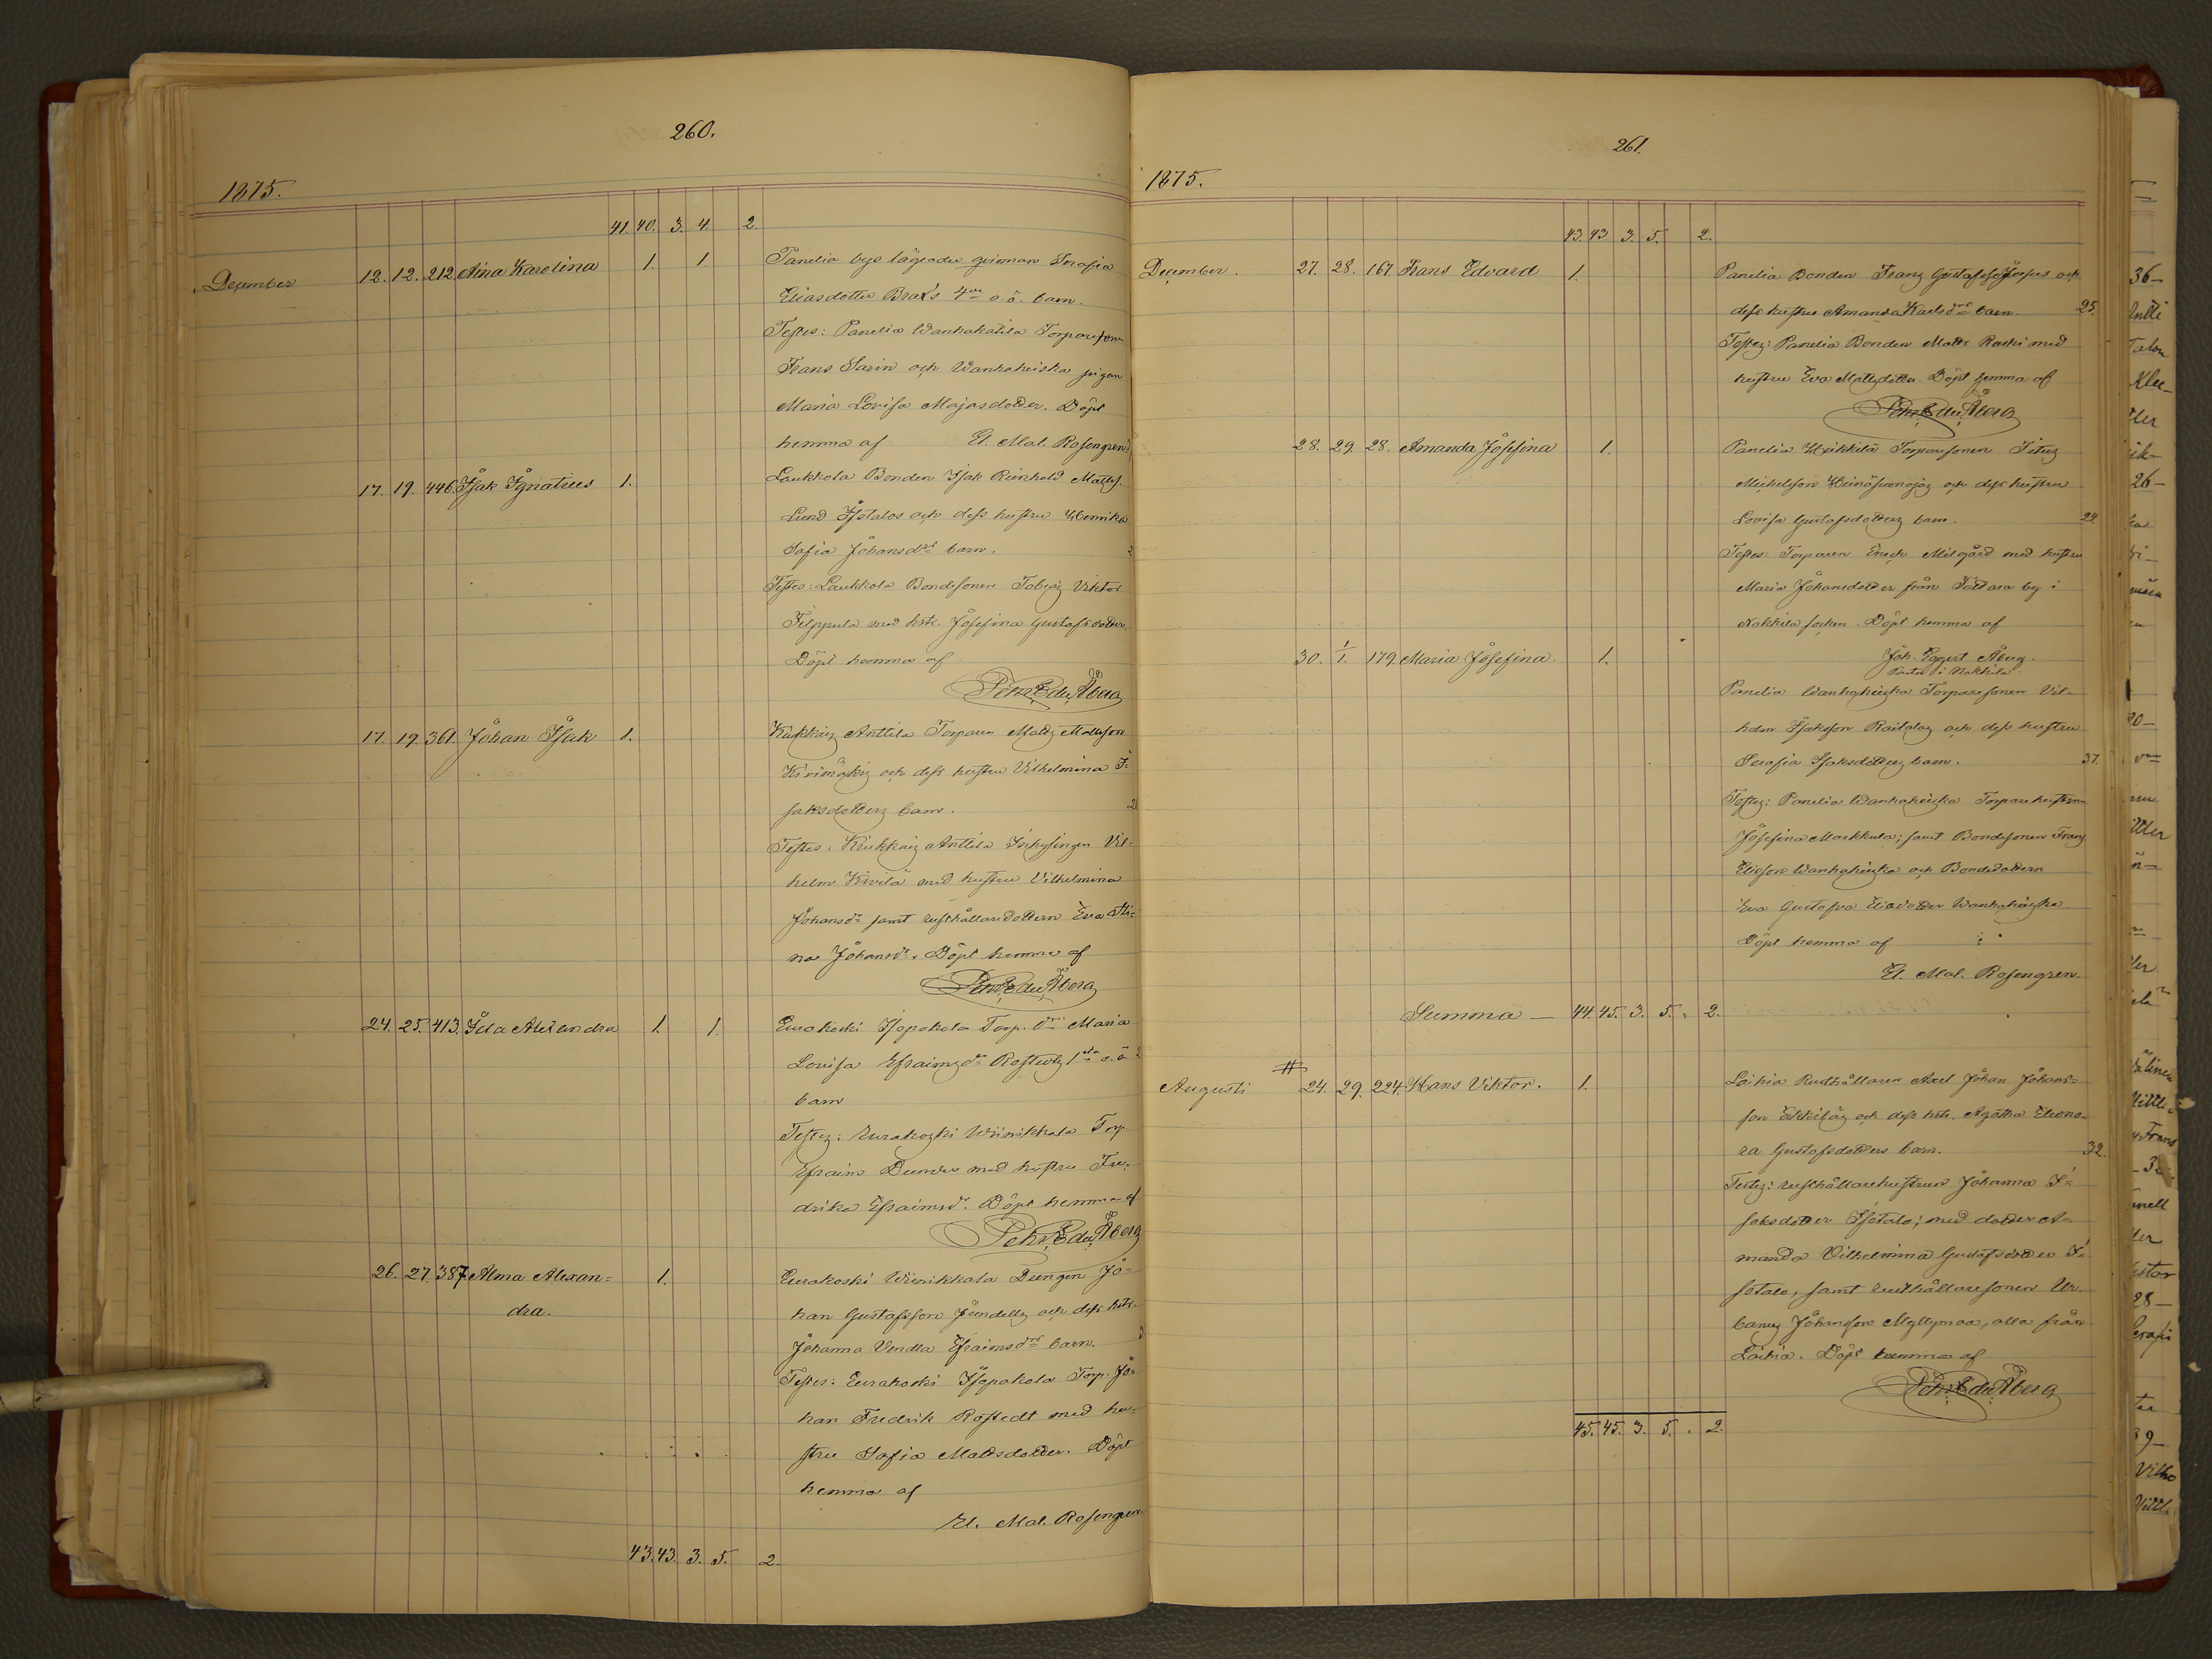 260.
1875.
41. 40. 3. 4. 2.
December 12. 12. 212. Aina Karolina 1. 1. Panelia bys lägrade qvinnan Serafia
Eliasdotter Brax's 4de o.ä. barn.
Testes: Panelia Wanhakätila Torparesonen
Frans Sarin och Wanhakeiska pigan
Maria Lovisa Majasdotter. Döpt
hemma af E. Mal. Rosengren.
17. 19. 446. Isak Ignatius 1. Laukkola Bonden Isak Reinhold Mattss.
Lund Isotalos och dess hustru Henrika
Sofia Johansdrs barn.
Testes: Laukkola Bondesonen Tobias Viktor
Filppula med hstr. Josefina Gustafsdotter.
Döpt hemma af
Pehr Edu. Åberg
17. 19. 361. Johan Isak 1. Kiukkais Anttila Torparen Matts Mattsson
Kivimäkis och dess hustru Vilhelmina I=
saksdotters barn.
Testes: Kiukkais Anttila Inhysingen Vil=
helm Kivilä med hustru Vilhelmina
Johansdr samt rusthållaredottern Eva Sti=
na Johansdr. Döpt hemma af
Pehr Edu. Åberg
24. 25. 413. Ida Alexandra 1. 1. Eurakoski Isopakola Torp. dri Maria
Lovisa Efraimsdrs Rostedts 1sta o.ä.
barn
Testes: Eurakoski Wiinikkala Torp.
Efraim Dunder med hustru Fre=
drika Efraimsdr. Döpt hemma af
Pehr Edu. Åberg
26. 27. 387. Alma Alexan= 1. Eurakoski Wiinikkala Drengen Jo=
dra. han Gustafsson Sundells och dess hstr.
Johanna Vendla Efraimsdrs barn.
Testes: Eurakoski Isopakola Torp. Jo=
han Fredrik Rostedt med hu=
stru Sofia Mattsdotter. Döpt
hemma af
E. Mal. Rosengren.
43. 43. 3. 5. 2.
261.
1875.
43. 43. 3. 5. 2.
December. 27. 28. 167. Frans Edvard 1. Panelia Bonden Frans Gustafsson och
dess hustru Amanda Karlsdrs barn. 25.
Testes: Panelia Bonden Matts Raski med
hustru Eva Mattsdotter. Döpt hemma af
Pehr Edu. Åberg
28. 29. 28. Amanda Josefina 1. Panelia Heikkilä Torparesonen Titus
Michelsson Heinäsuonojas och dess hustru
Lovisa Gustafsdotters barn. 29.
Testes: Torparen Enoch Milgård med hustru
Maria Johansdotter från Tattara by i
Nakkila socken. Döpt hemma af
Joh. Eggert Åberg.
Pastor i Nakkila
30. 1/1. 179. Maria Josefina. 1.
Panelia Wanhakeiska Torparesonen Vil=
helm Isaksson Railalas och dess hustru
Serafia Isaksdotters barn. 37.
Testes: Panelia Wanhakeiska Torparehustrun
Josefina Markkula; samt Bondesonen Frans
Eliasson Wanhakeiska och Bondedottern
Eva Gustafva Eliasdotter Wanhakeiska
Döpt hemma af
E. Mal. Rosengren.
Summa — 44. 45. 3. 5. " 2.
#
Augusti 24. 29. 224. Hans Viktor. 1. Laihia Rusthållaren Axel Johan Johans=
son Eskkiläs och dess hstr. Agatha Eleono=
ra Gustafsdotters barn. 32.
Testes: rusthållarehustrun Johanna I=
saksdotter Isotalo; med dotter A=
manda Vilhelmina Gustafsdotter I=
sotalo, samt rusthållaresonen Ur=
banus Johansson Myllymaa, alla från
Laihia. Döpt hemma af
Pehr Edu. Åberg
45. 45. 3. 5. . 2.